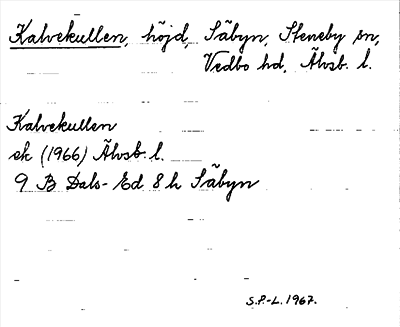 Kalvekullen, höjd, Säbyn, Steneby sn,
Vedbo hd, Älvsb. l.
Kalvekullen
ek (1966) Älvsb. l.
9 B Dals-Ed 8 h Säbyn
S.P.-L. 1967.